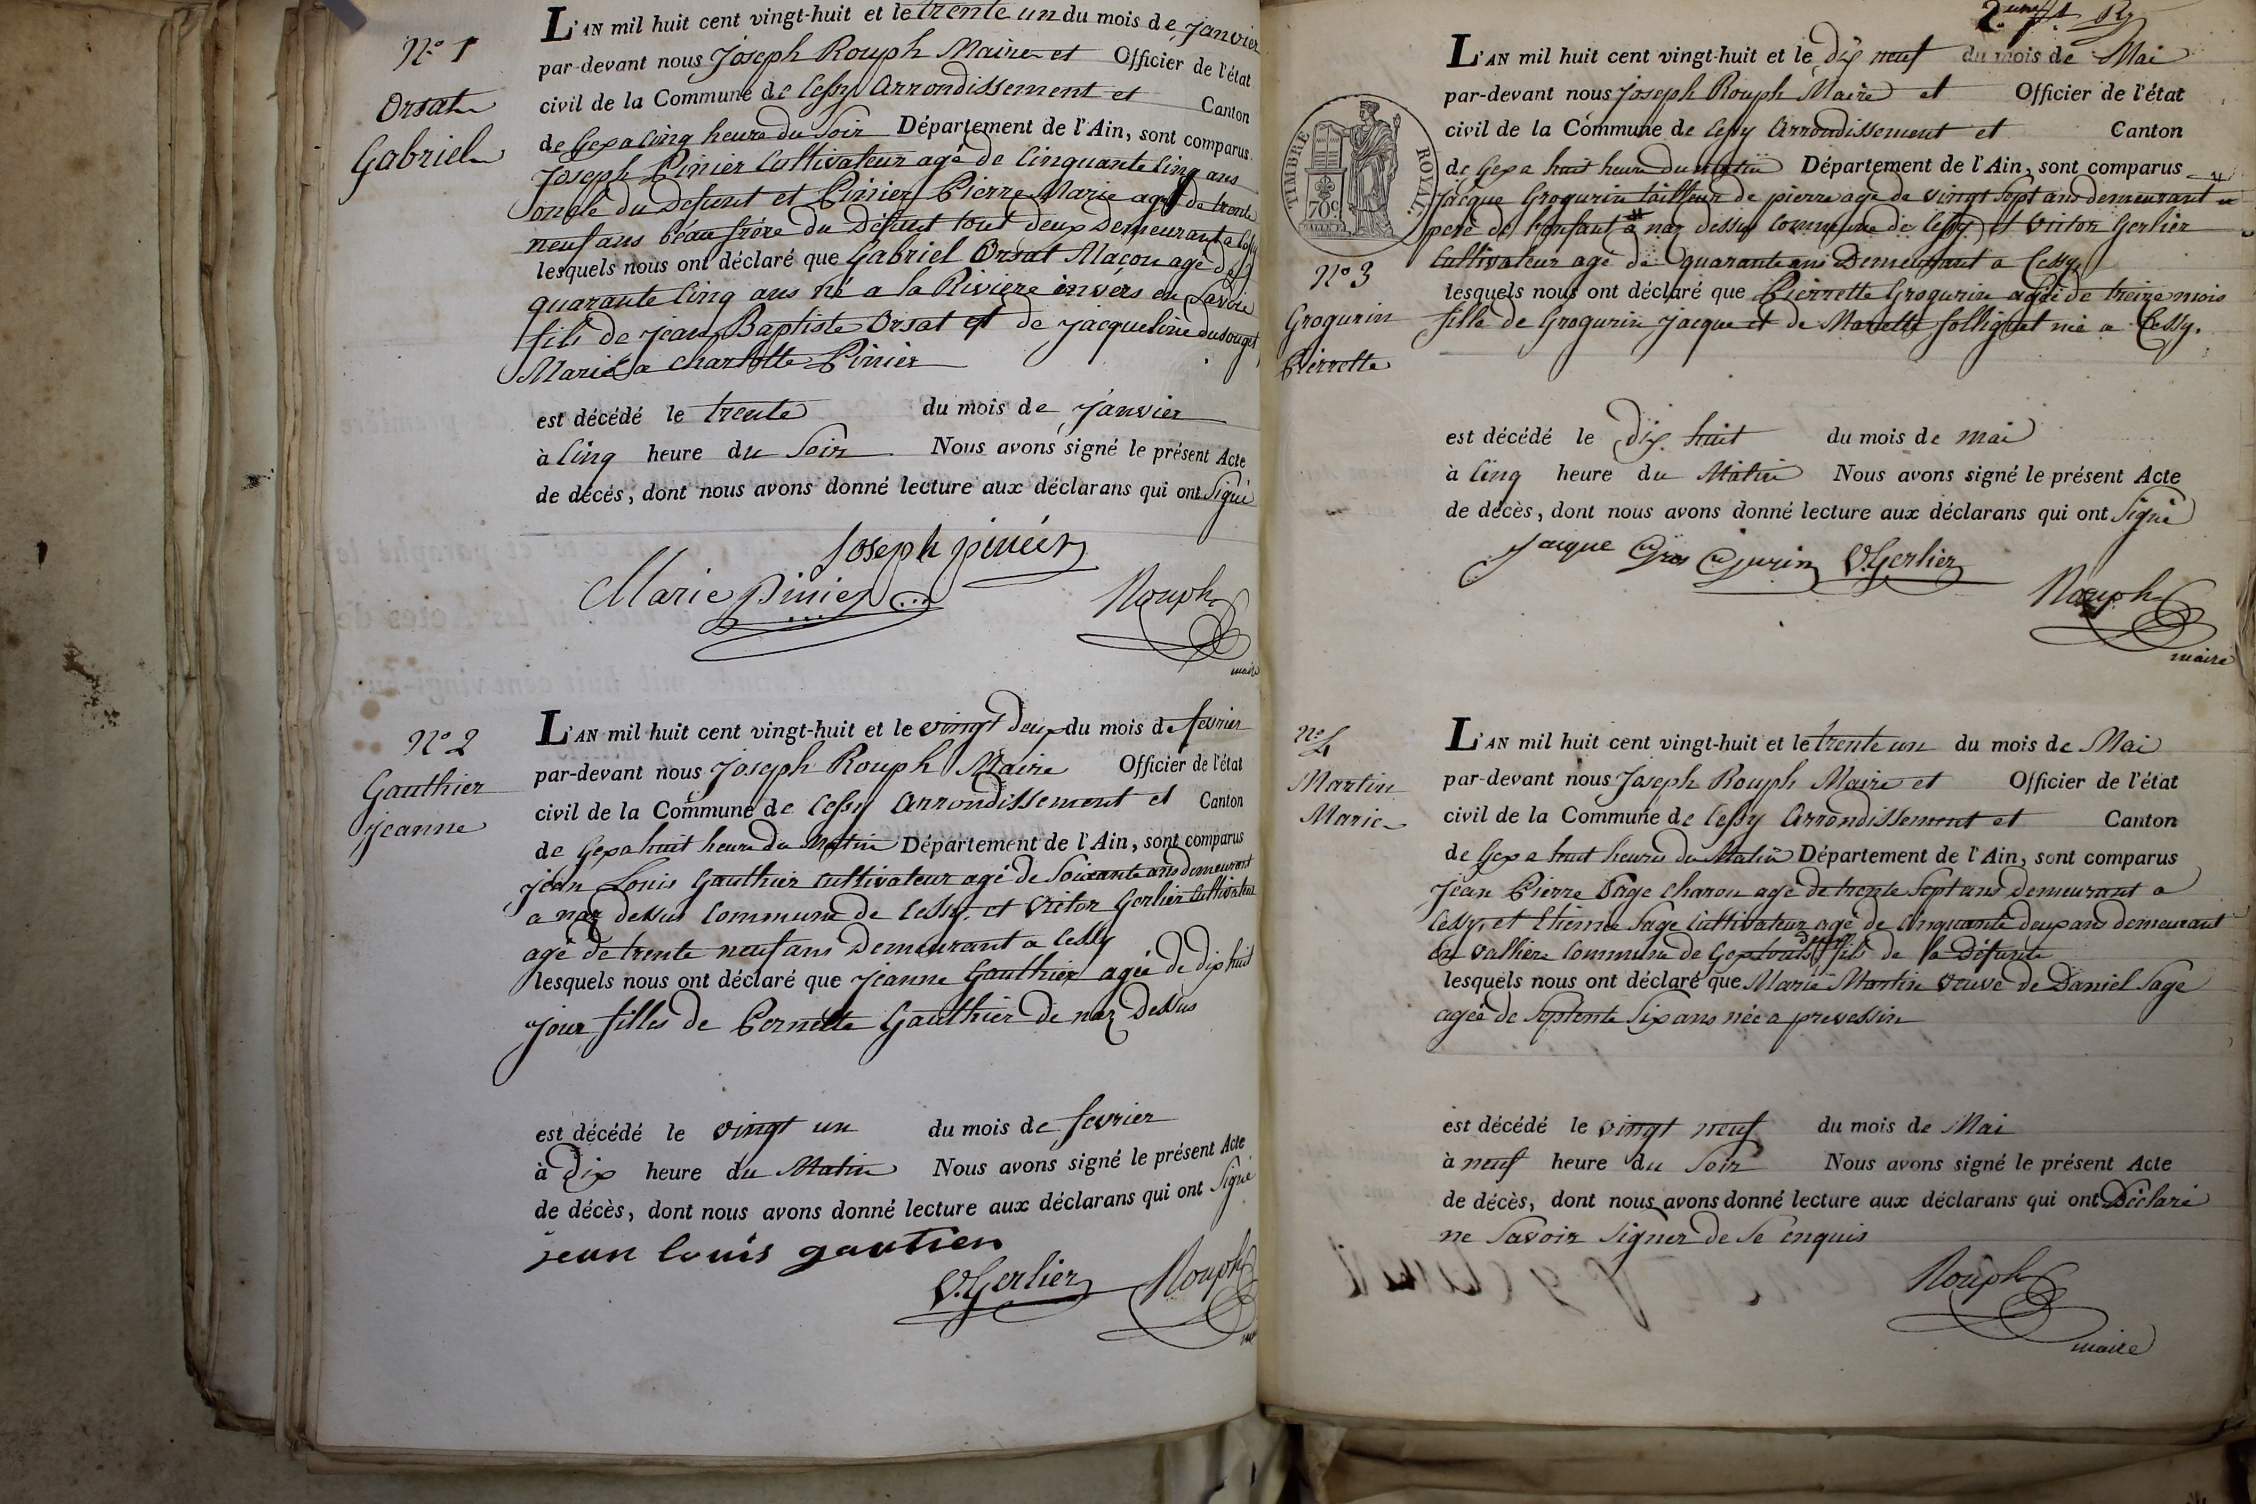 N.o 1
Orsat
Gabriel
L'AN mil huit cent vingt-huit et le trente un du mois de janvier
par-devant nous Joseph Rouph Maire et Officier de l'état
civil de la Commune de Cessy Arrondissement et Canton
de Gex a cinq heure du Soir Département de l'Ain, sont comparus
Joseph Pinier Cultivateur agé de Cinquante Cinq ans
oncle du Defunt et Pinier Pierre Marie agé de trente
neuf ans béaufrére du Défunt tout deux Demeurant a Cessy
lesquels nous ont déclaré que Gabriel Orsat Maçon agé de
quarante Cinq ans né a la Riviere invers en Savoie
fils de jean Baptiste Orsat et de jacqueline dusouget
Marié a Charlotte Pinier
est décédé le trente du mois de janvier
à Cinq heure du Soir Nous avons signé le présent Acte
de décés, dont nous avons donné lecture aux déclarans qui ont Signé
Joseph pinier
Marie pinier Rouph
maire
N.o 2
Gauthier
jeanne
L'AN mil huit cent vingt-huit et le vingt deux du mois de fevrier
par-devant nous Joseph Rouph Maire Officier de l'état
civil de la Commune de Cessy Arrondissement et Canton
de Gex a huit heure du Matin Département de l'Ain, sont comparus
jean Louis Gauthier cultivateur agé de Soixante ans demeurant
a naz dessus Commune de Cessy, et Victor Gerlier Cultivateur
agé de trente neuf ans Demeurant a Cessy
lesquels nous ont déclaré que jeanne Gauthier agée de dix huit
jour filles de Pernette Gauthier de naz Dessus
est décédé le vingt un du mois de fevrier
à Dix heure du Matin Nous avons signé le présent Acte
de décès, dont nous avons donné lecture aux déclarans qui ont Signé
jean louis gautier
V. Gerlier Rouph
TIMBRE ROYAL.
70c
N.o 3
Grogurin
Pierrette
L'AN mil huit cent vingt-huit et le dix neuf du mois de Mai
par-devant nous Joseph Rouph Maire et Officier de l'état
civil de la Commune de Cessy Arrondissement et Canton
de Gex a huit heure du matin Département de l'Ain, sont comparus
jacque Grogurin tailleur de pierre agé de vingt Sept ans demeurant
pere de l'enfant a naz dessus commune de Cessy et Victor Gerlier
Cultivateur agé de quarante ans Demeurant a Cessy
lesquels nous ont déclaré que Pierrette Grogurin agée de treize mois
fille de Grogurin jacque et de Mariette folliguet née a Cessy.
est décédé le Dix huit du mois de mai
à Cinq heure du Matin Nous avons signé le présent Acte
de décès, dont nous avons donné lecture aux déclarans qui ont Signé
jacque Gros Gurin V. Gerlier
Rouph
maire
N.o 4
Martin
Marie
L'AN mil huit cent vingt-huit et le trente un du mois de Mai
par-devant nous Joseph Rouph Maire et Officier de l'état
civil de la Commune de Cessy Arrondissement et Canton
de Gex a huit heures du Matin Département de l'Ain, sont comparus
Jean Pierre Sage charon agé de trente Sept ans Demeurant a
Cessy, et Etienne Sage Cultivateur agé de Cinquante deux ans demeurant
en valliere Commune de Gex touts fils de la Défunte
lesquels nous ont déclaré que Marie Martin veuve de Daniel Sage
agée de Septente Six ans née a prevessin
est décédé le vingt neuf du mois de Mai
à neuf heure du Soir Nous avons signé le présent Acte
de décès, dont nous avons donné lecture aux déclarans qui ont Déclaré
ne Savoir Signer de Se enquis
Rouph
maire